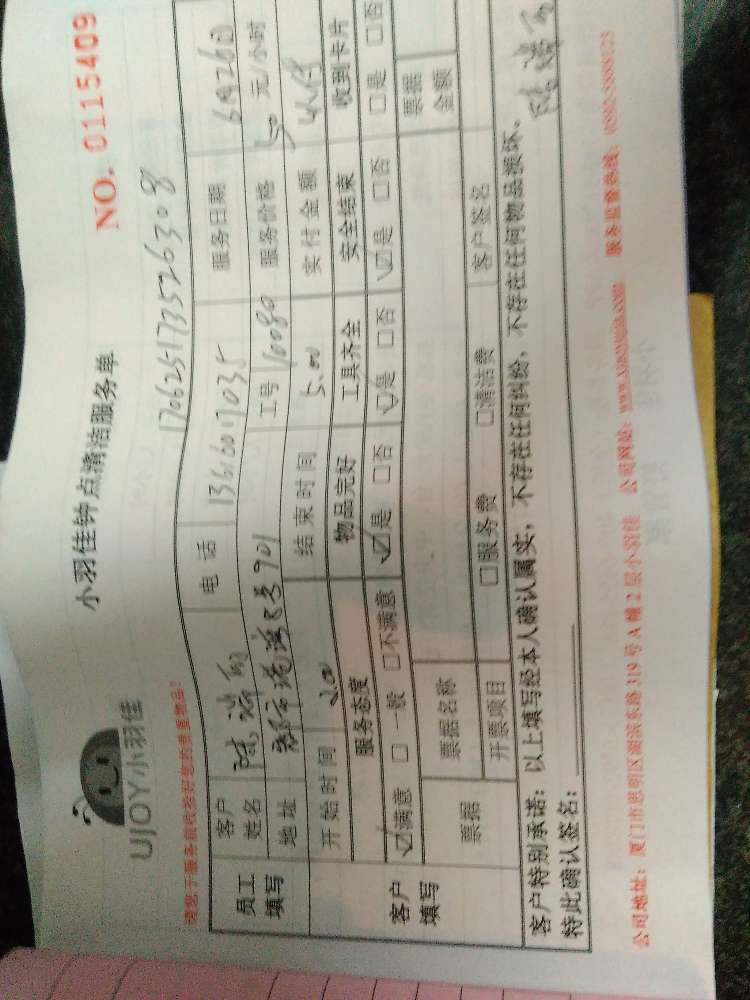 UJOY小羽佳
小羽佳钟点清洁服务单
NO. 0115409
请您于服务前收拾好您的贵重物品!
170625173526308
员工填写
客户姓名 陈 电话 服务日期 6月26日
地址 8号701 工号 10080 服务价格 50 元/小时
开始时间 2.00 结束时间 5.00 实付金额
客户填写
服务态度 物品完好 工具齐全 安全结束 收到卡片
☑满意 □一般 □不满意 ☑是 □否 ☑是 □否 ☑是 □否 □是 □否
票据 票据名称 票据金额
开票项目 □服务费 □清洁费 客户签名
客户特别承诺: 以上填写经本人确认属实, 不存在任何纠纷, 不存在任何物品损坏。
特此确认签名: 陈
公司地址: 厦门市思明区湖滨东路319号A幢2层小羽佳 公司网址: www.xiaoyujia.com 服务监督热线: